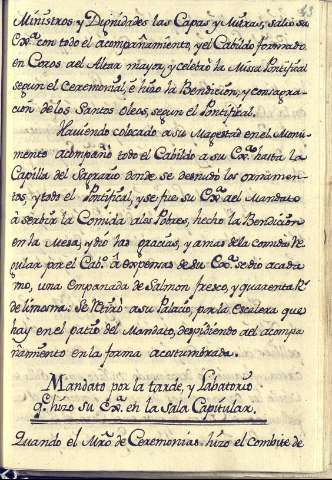 43
Ministros y Dignidades las Capas y Mitras, salió su
Exª. con todo el acompañamiento, y el Cabildo formado
en Coros al Altar mayor, y celebró la Missa Pontifical
segun el Ceremonial, e hizo la Bendicion, y consagra-
cion de los Santos Oleos, segun el Pontifical.
Haviendo colocado a su Magestad en el Monu-
mento acompañó todo el Cabildo a su Exª. hasta la
Capilla del Sagrario donde se desnudó los ornamen-
tos, y todo el Pontifical, y se fue su Exª. al Mandato
à servir la Comida a los Pobres, hecho la Bendicion
en la Mesa, y dio las gracias, y a mas de la comida re-
gular por el Cabº. à expensas de su Exª. se dió a cada
uno, una Empanada de Salmon fresco, y quarenta Rˢ
de limosna: Se retiró a su Palacio, por la Escalera que
hay en el patio del Mandato, despidiendo al acompa-
ñamiento en la forma acostumbrada.
Mandato por la tarde, y Labatorio
q.ᵉ hizo su Exª. en la Sala Capitular.
Quando el Mrô de Ceremonias hizo el combite de